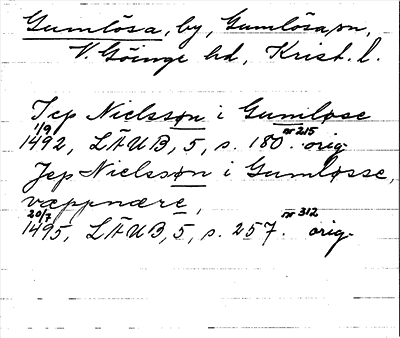 Gumlösa, by, Gumlösa sn,
V. Göinge hd, Krist. l.
Jep Nielsson i Gumløse
1/9 1492, LÄUB, 5, s. 180. nr 215 orig.
Jep Nielsson i Gumløsse,
væppnære,
20/7 1495, LÄUB, 5, s. 257. nr 312 orig.